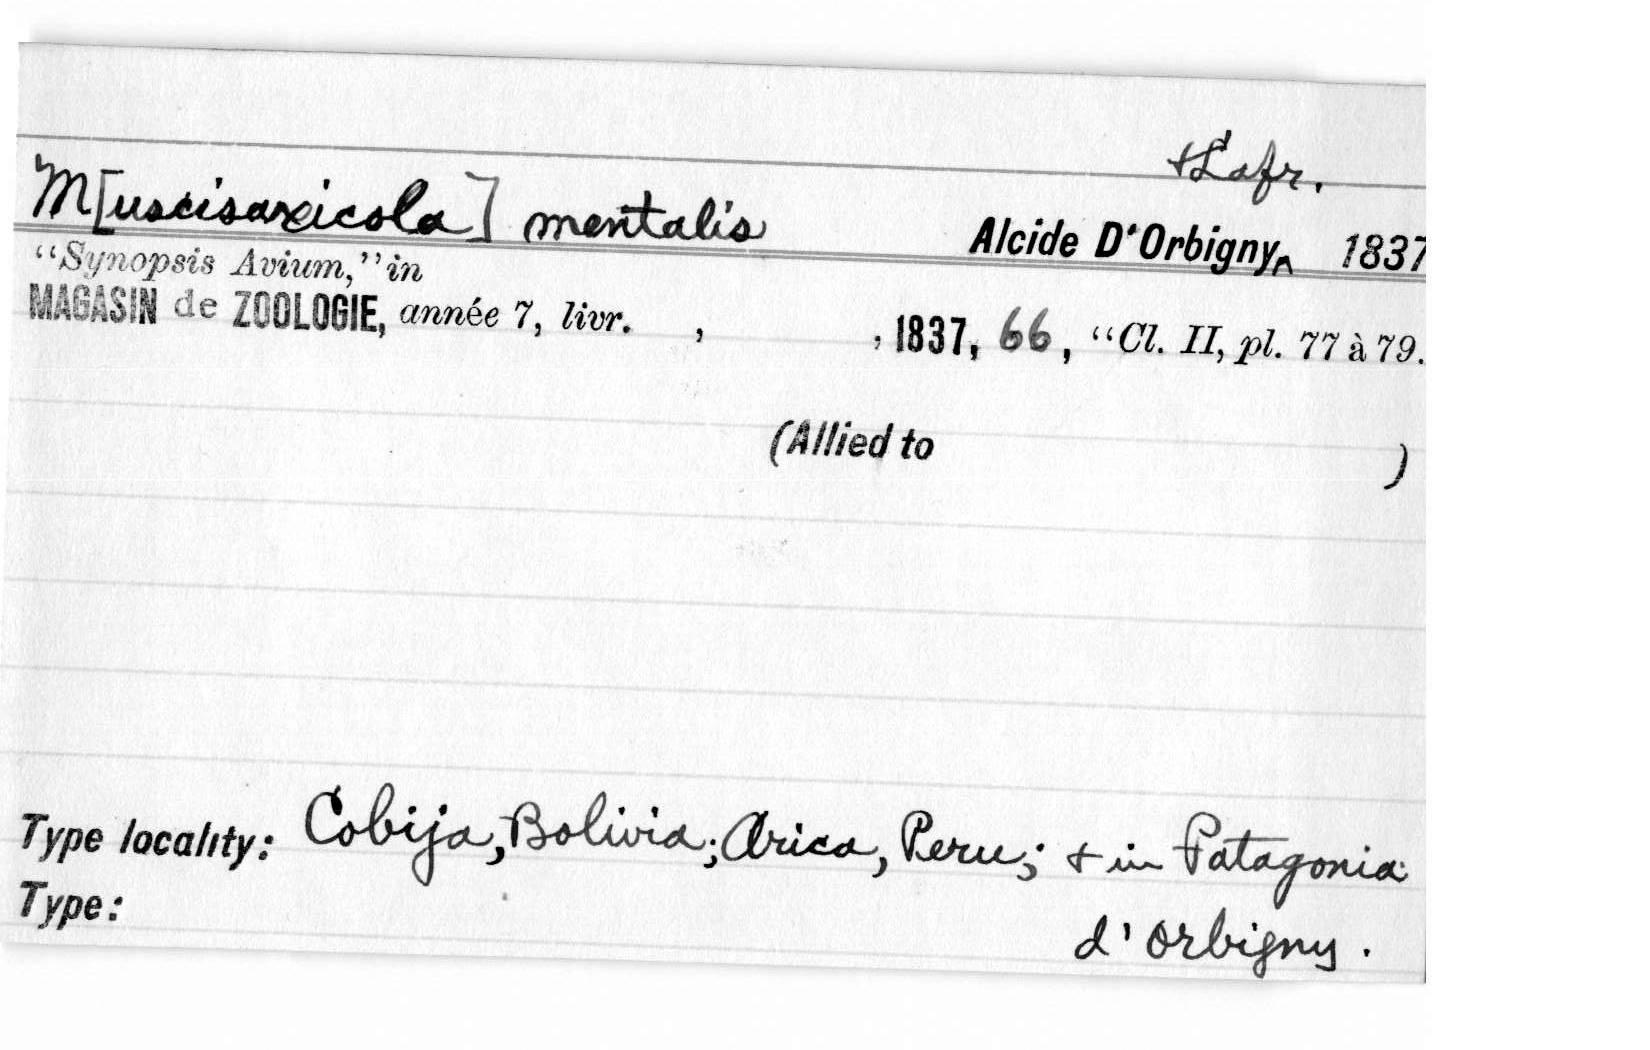 + Lafr.
M[uscisaxicola] mentalis Alcide D'Orbigny^ 1837
"Synopsis Avium," in
MAGASIN de ZOOLOGIE, année 7, livr. , , 1837, 66, "Cl. II, pl. 77 à 79.
(Allied to )
Type locality: Cobija, Bolivia; Arica, Peru; + in Patagonia
Type: d'Orbigny.